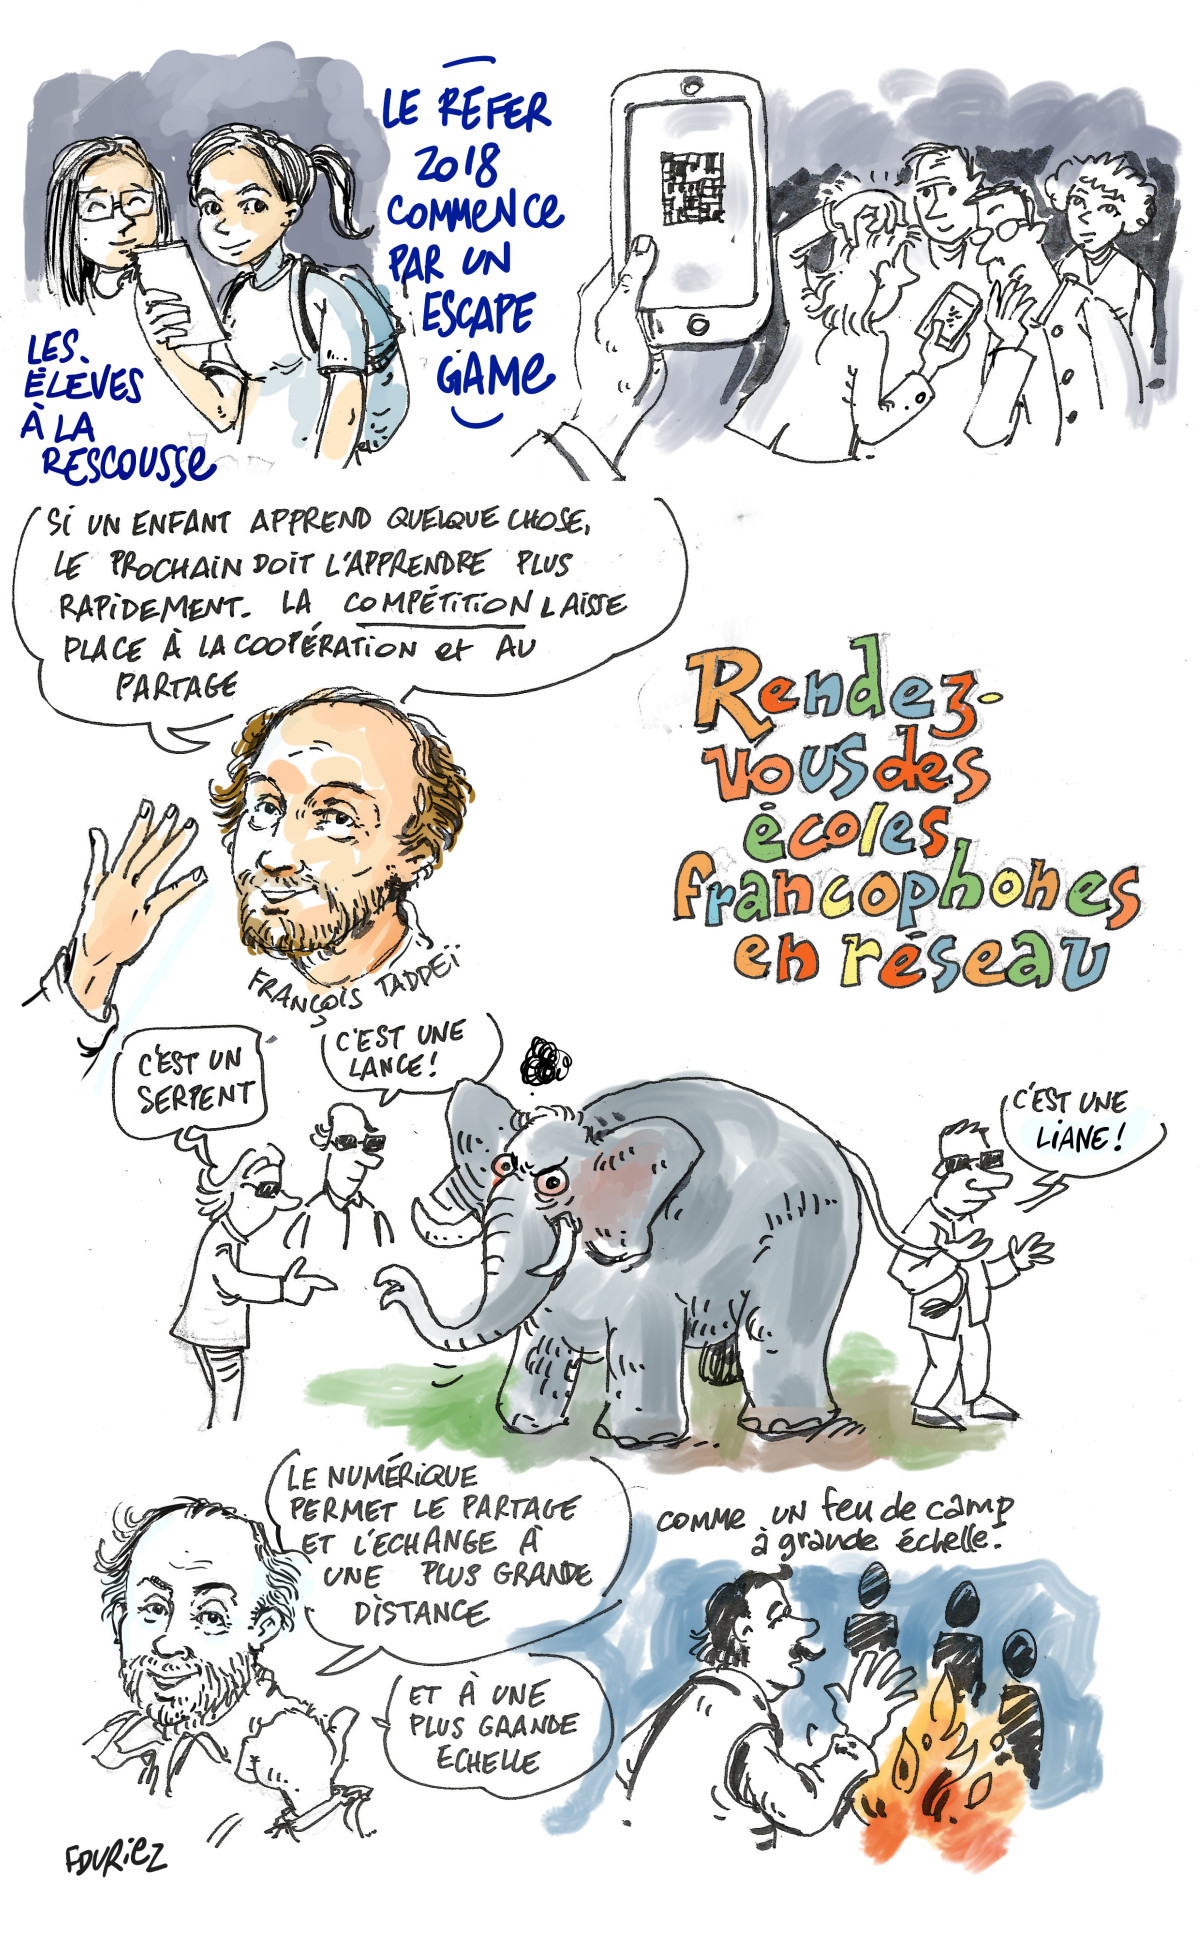 LE REFER
2018
COMMENCE
PAR UN
ESCAPE
GAME
LES
ÉLEVES
À LA
RESCOUSSE
SI UN ENFANT APPREND QUELQUE CHOSE,
LE PROCHAIN DOIT L'APPRENDRE PLUS
RAPIDEMENT. LA COMPÉTITION LAISSE
PLACE À LA COOPÉRATION et AU
PARTAGE
Rendez-
vous des
écoles
francophones
en réseau
FRANÇOIS TADDEÏ
C'EST UN
SERPENT
C'EST UNE
LANCE!
C'EST UNE
LIANE!
LE NUMÉRIQUE
PERMET LE PARTAGE
ET L'ECHANGE À
UNE PLUS GRANDE
DISTANCE
comme un feu de camp
à grande échelle.
ET À UNE
PLUS GRANDE
ECHELLE
FDURIEZ